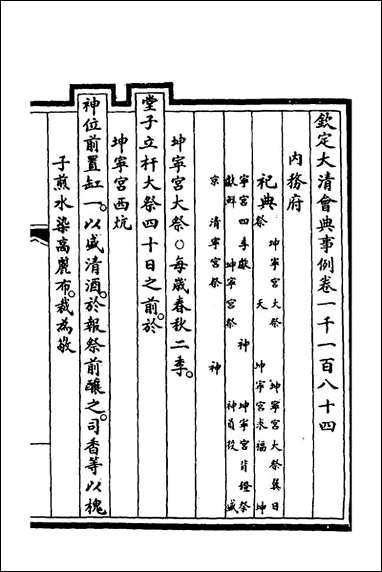 欽定大清會典事例卷一千一百八十四
內務府
祀典 坤寧宮大祭 坤寧宮大祭翼日
祭 天 坤寧宮求福 坤
寧宮四季獻 神 坤寧宮背燈祭
獻鮮 坤寧宮祭 神員役 盛
京 清寧宮祭 神
坤寧宮大祭○每歲春秋二季。
堂子立杆大祭四十日之前。於
坤寧宮西炕
神位前置缸一。以盛清酒。於報祭前釀之。司香等以槐
子煎水染高麗布。裁為敬